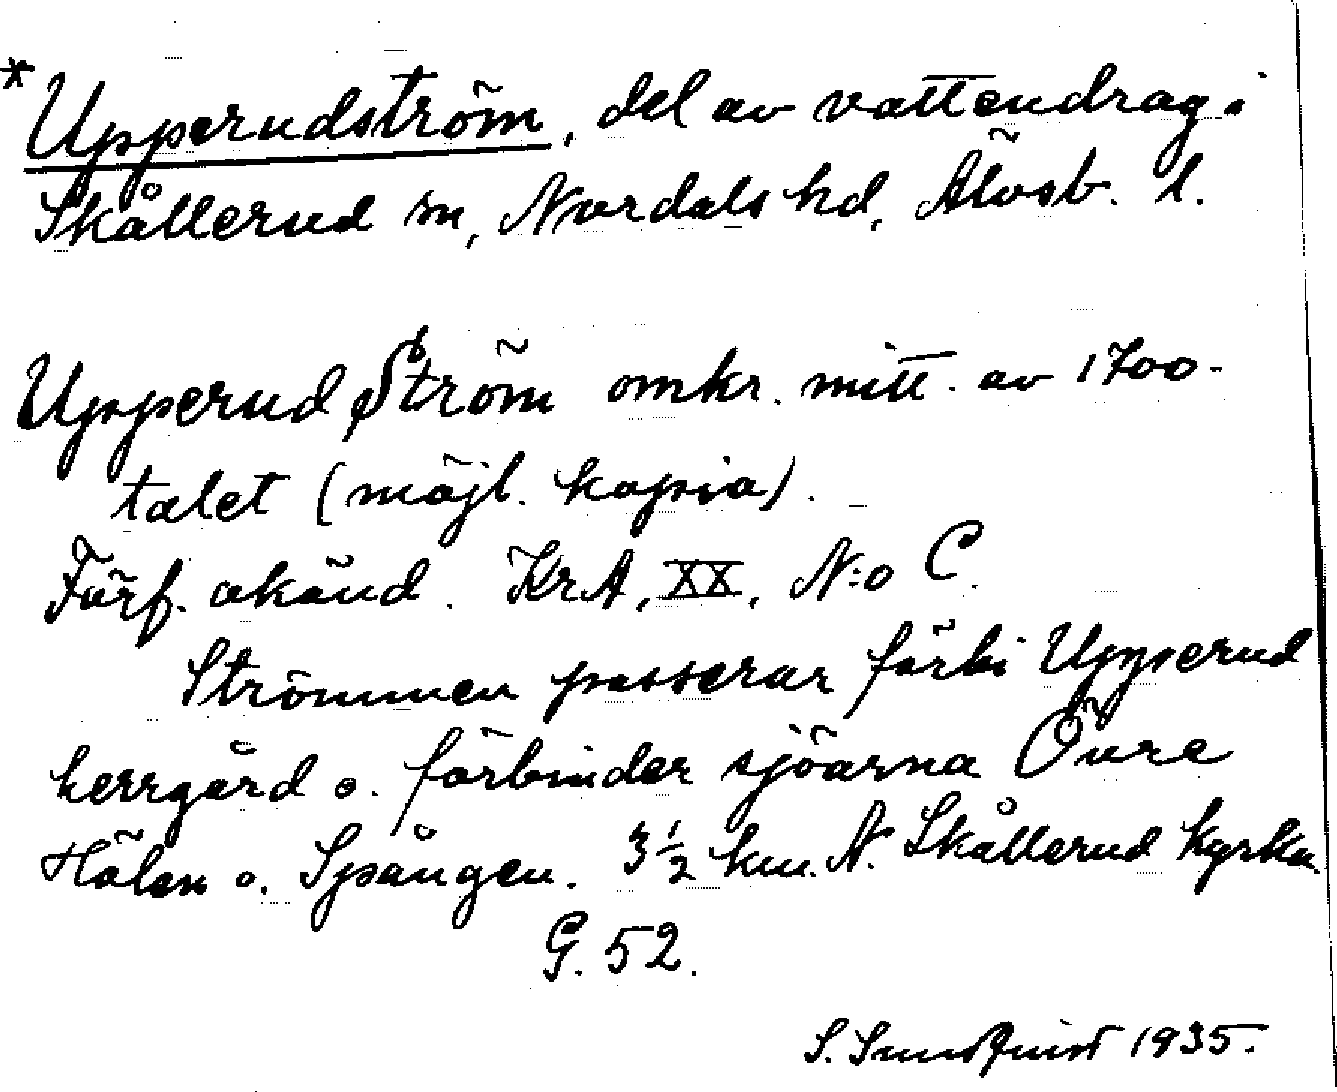 *Upperudström, del av vattendrag i
Skållerud sn, Nordals hd, Älvsb. l.
Upperud Ström omkr. mitt. av 1700-
talet (möjl. kopia).
Förf. okänd. KrA, XX, N:o C.
Strömmen passerar förbi Upperud
herrgård o. förbinder sjöarna Övre
Hölen o. Spången. 3 1/2 km. N. Skållerud kyrka
G. 52.
S. Sundquist 1935.